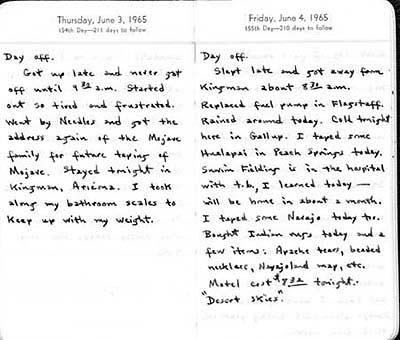 Thursday, June 3, 1965
154th Day—211 days to follow
Day off.
Got up late and never got
off until 9 30 a.m. Started
out so tired and frustrated.
Went by Needles and got the
address again of the Mojave
family for future taping of
Mojave. Stayed tonight in
Kingman, Arizona. I took
along my bathroom scales to
keep up with my weight.
Friday, June 4, 1965
155th Day—210 days to follow
Day off.
Slept late and got away from
Kingman about 8 30 a.m.
Replaced fuel pump in Flagstaff.
Rained around today. Cold tonight
here in Gallup. I taped some
Hualapai in Peach Springs today.
Fieldings is in the hospital
with t.b., I learned today —
will be home in about a month.
I taped some Navajo today too.
Bought Indian rugs today and a
few items: Apache tears, beaded
necklace, Navajoland map, etc.
Motel cost $8 32 tonight.
"Desert Skies."